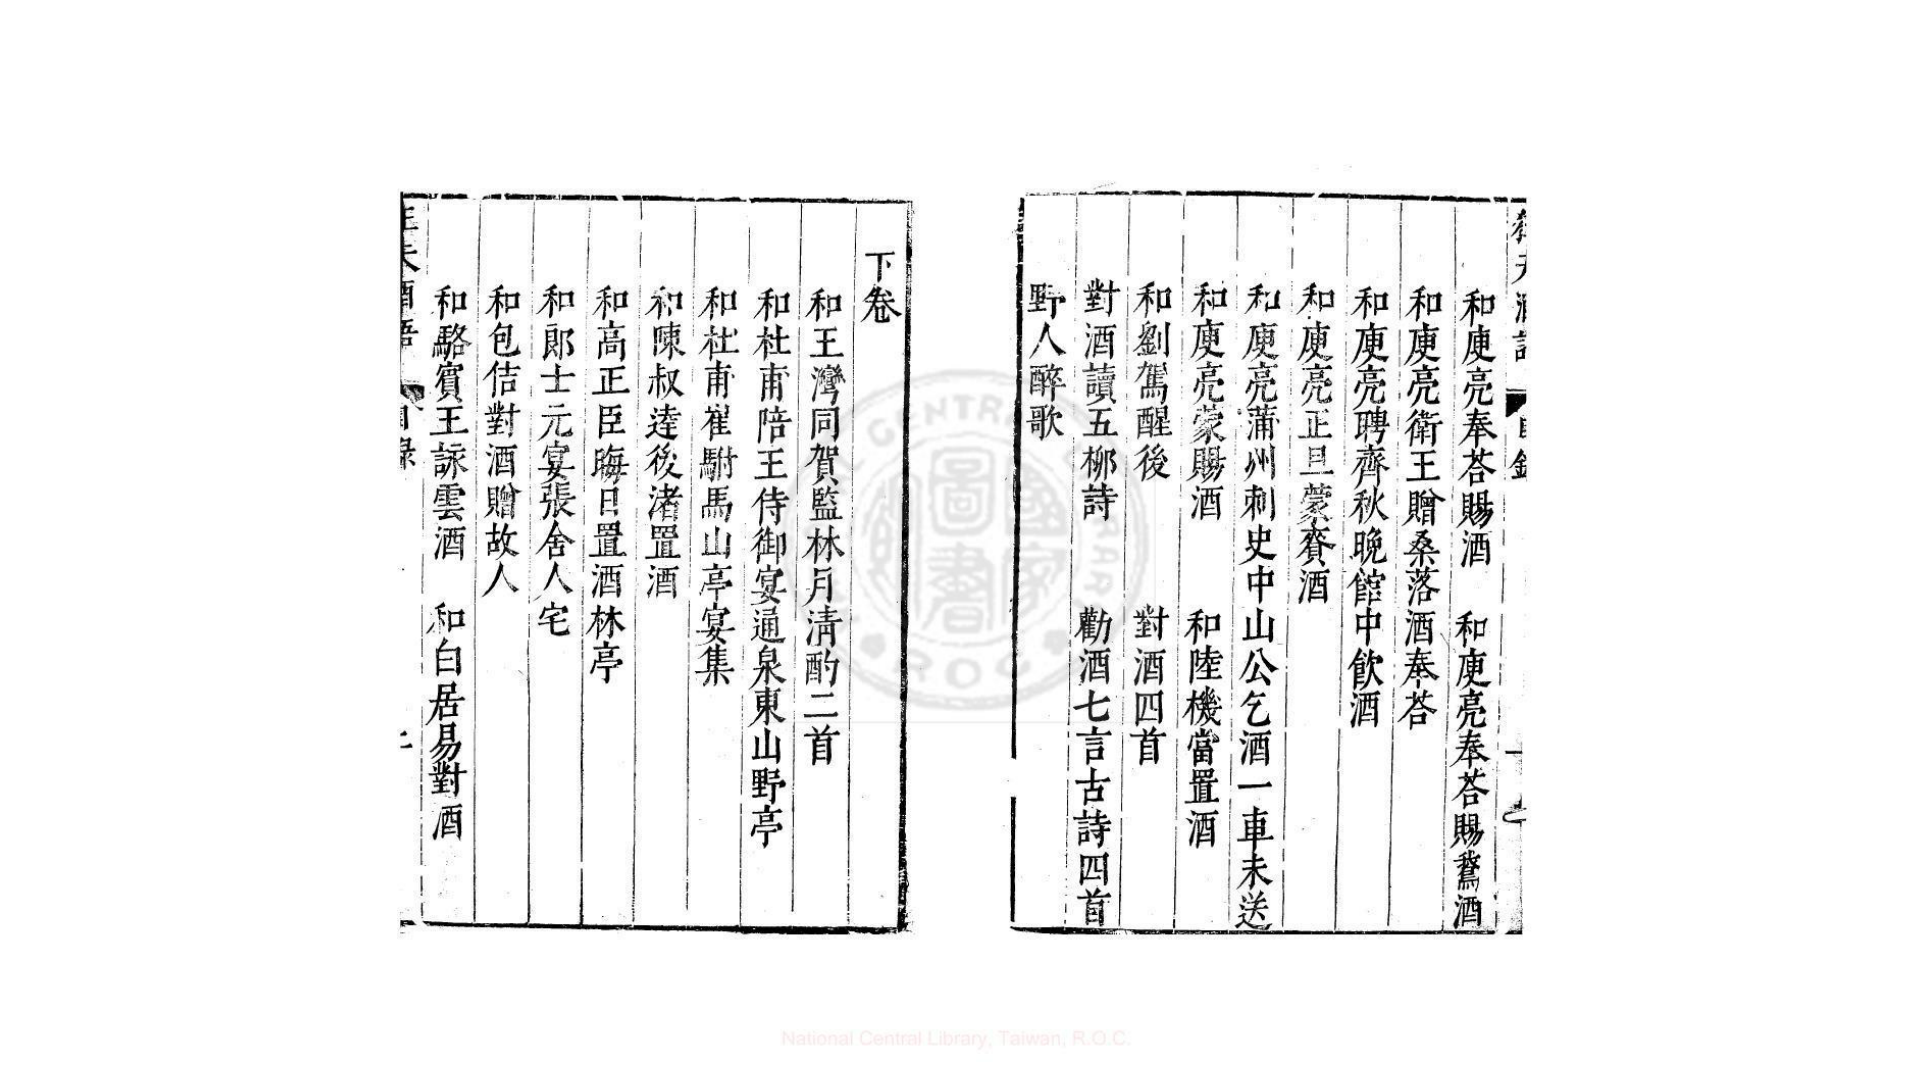 和庾亮奉荅賜酒　和庾亮奉荅賜鵞酒
和庾亮衛王贈桑落酒奉荅
和庾亮聘齊秋晚館中飲酒
和庾亮正旦蒙賚酒
和庾亮蒲州刺史中山公乞酒一車未送
和庾亮蒙賜酒　和陸機當置酒
和劉駕醒後　對酒四首
對酒讀五柳詩　勸酒七言古詩四首
野人醉歌
下卷
和王灣同賀監林月清酌二首
和杜甫陪王侍御宴通泉東山野亭
和杜甫崔駙馬山亭宴集
和陳叔達後渚置酒
和高正臣晦日置酒林亭
和郎士元宴張舍人宅
和包佶對酒贈故人
和駱賓王詠雲酒　和白居易對酒
國家圖書館
National Central Library, Taiwan, R.O.C.